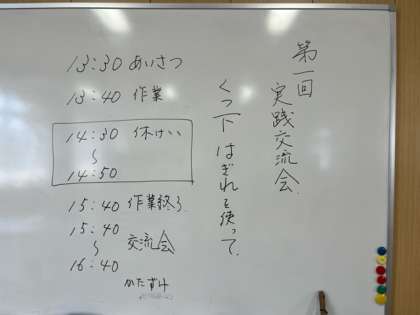 第一回
実践交流会
くつ下はぎれを使って、
13:30 あいさつ
13:40 作業
14:30 休けい
〜
14:50
15:40 作業終了
15:40
〜 交流会
16:40
かたずけ